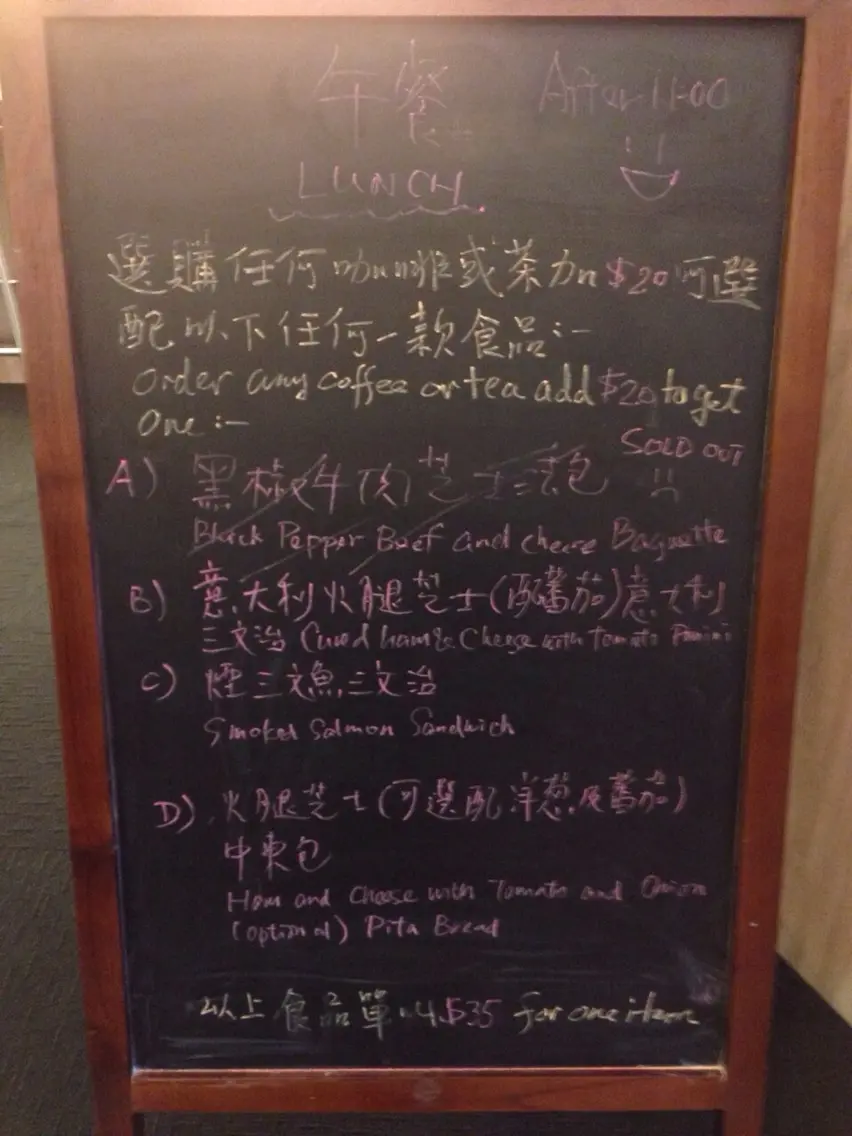 午餐 After 11:00
LUNCH
選購任何咖啡或茶加$20可選
配以下任何一款食品:-
Order any coffee or tea add $20 to get
One :-
SOLD OUT
A) 黑椒牛肉芝士法包
Black Pepper Beef and cheese Baguette
B) 意大利火腿芝士(配蕃茄)意大利
三文治 Cured ham & Cheese with tomato Panini
C) 煙三文魚三文治
Smoked Salmon Sandwich
D) 火腿芝士(可選配洋葱及蕃茄)
中東包
Ham and Cheese with Tomato and Onion
(optional) Pita Bread
以上食品單叫$35 for one item